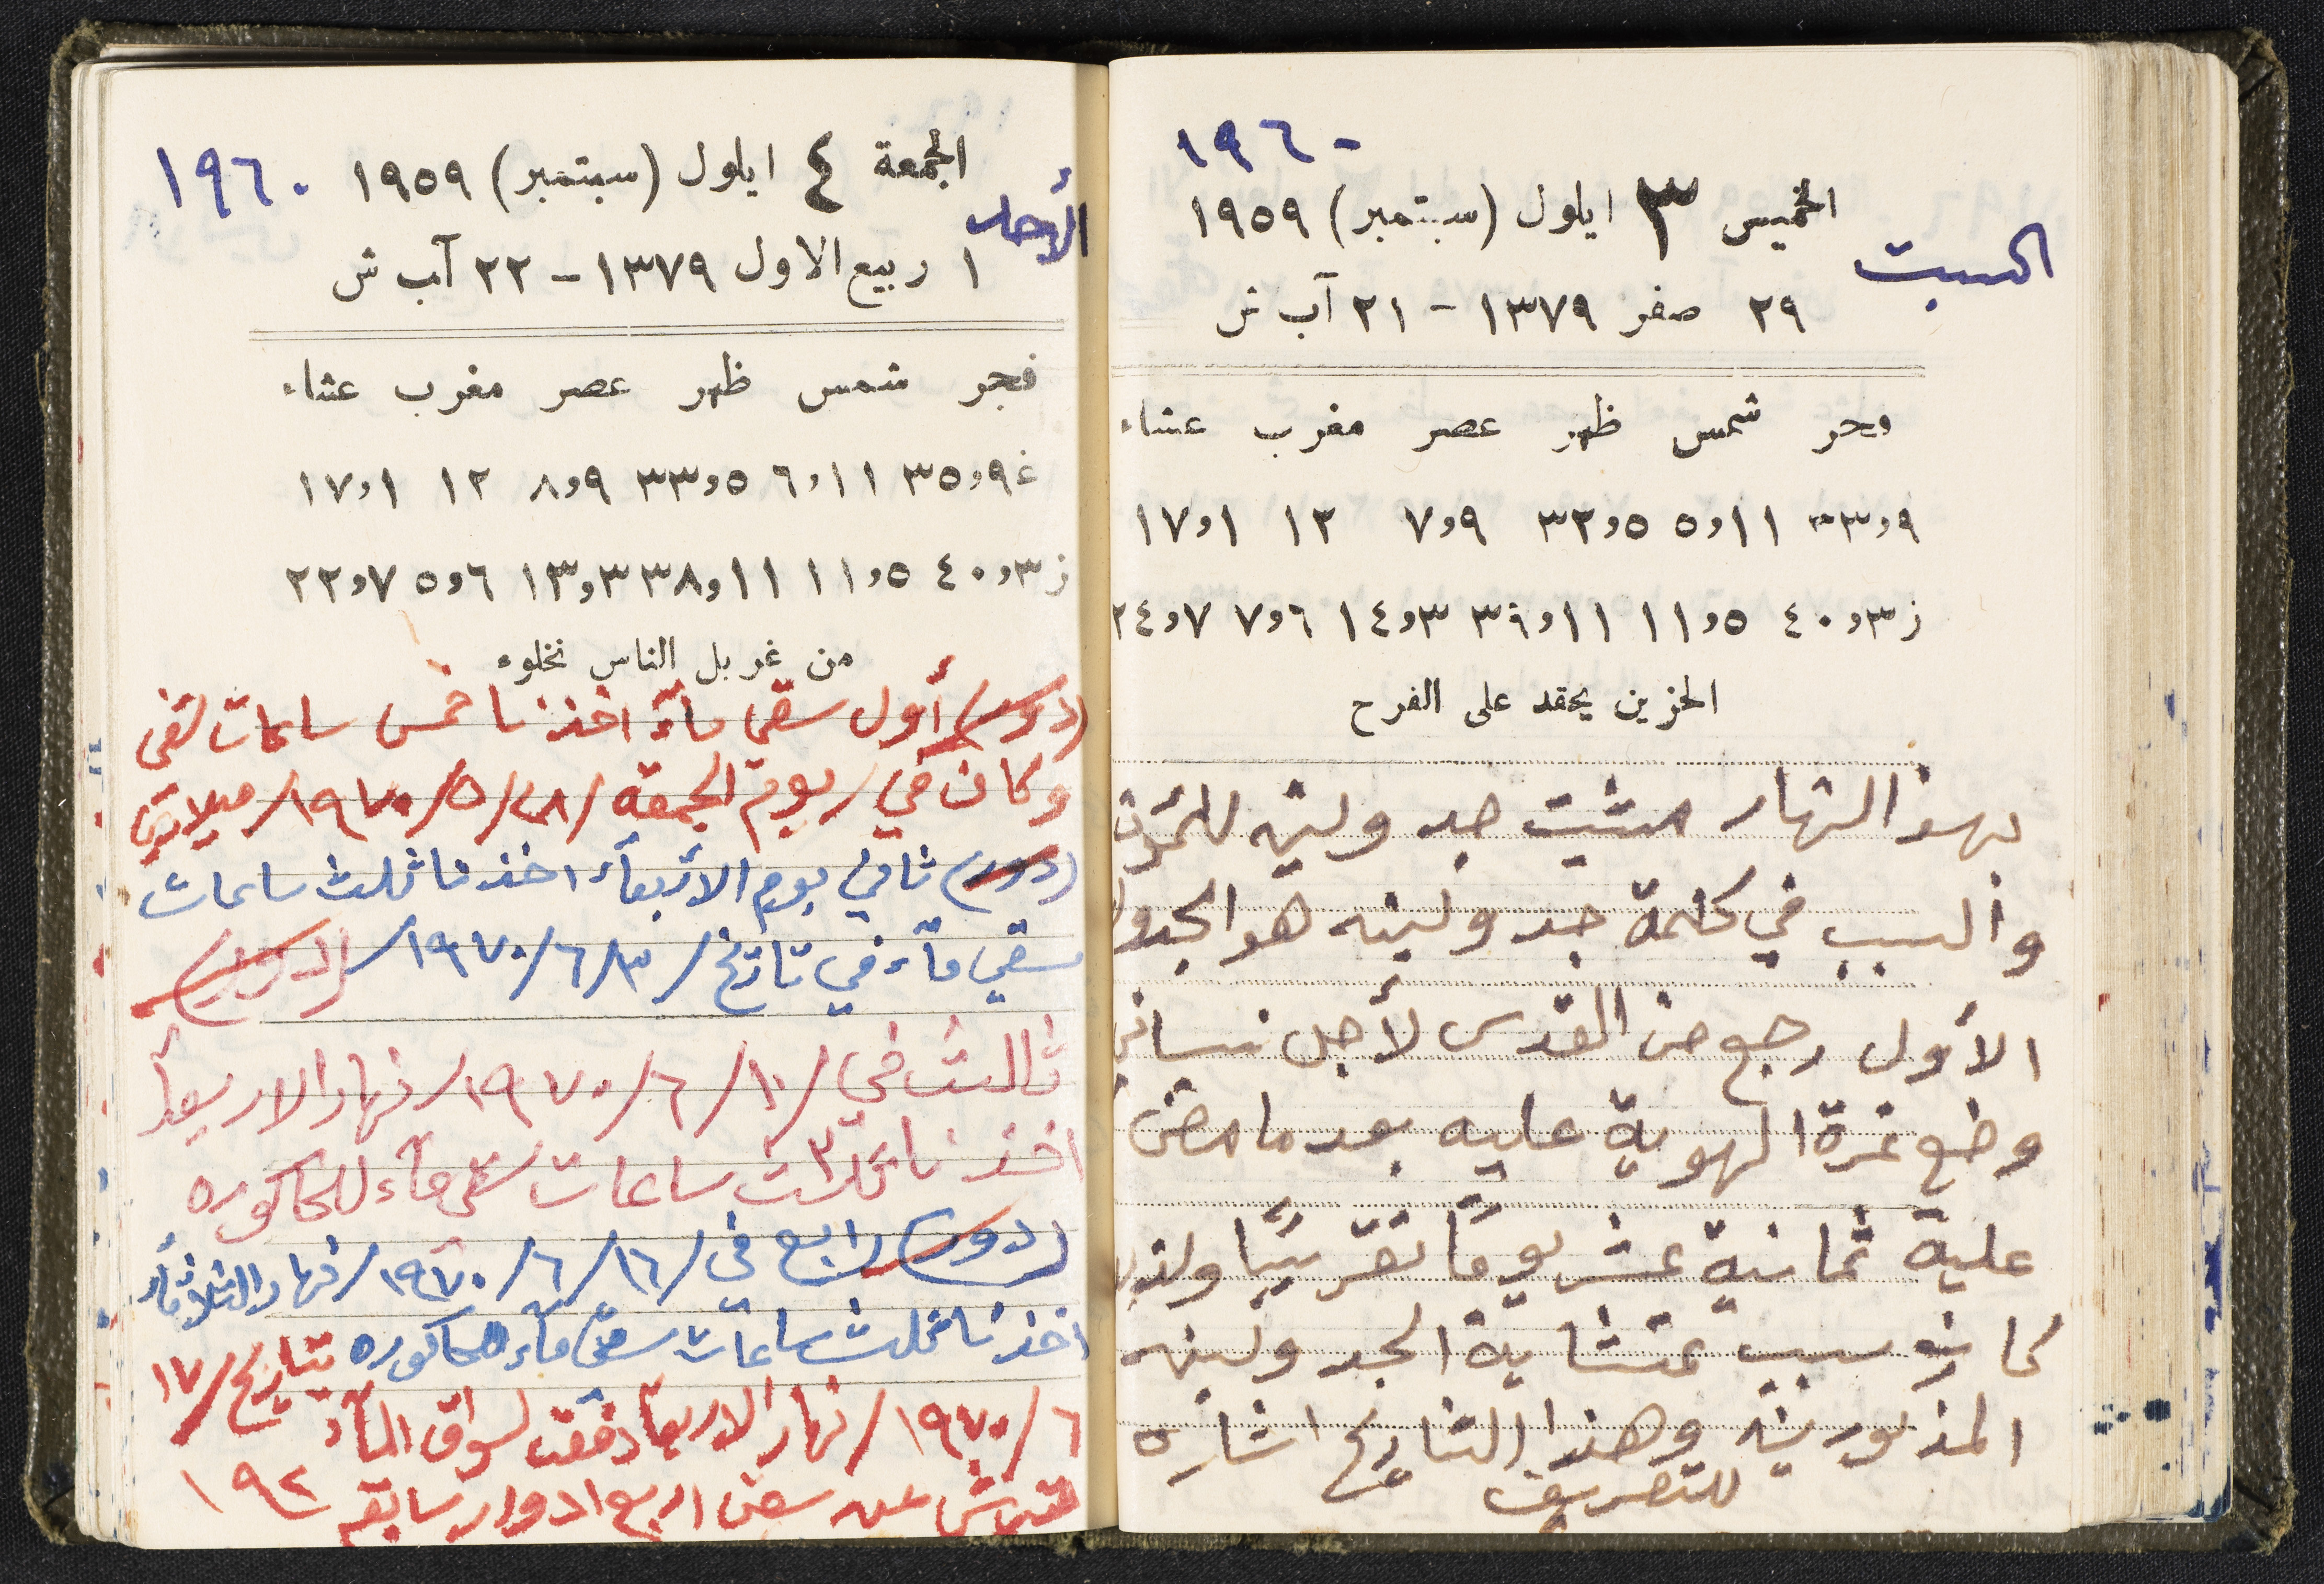 ١٩٦٠
الخميس ٣ ايلول (سبتمبر) ١٩٥٩
السبت
٢٩ صفر ١٣٧٩ - ٢١ آب ش
فجر شمس ظهر عصر مغرب عشاء
٩و٣٣ ١١و٥ ٥و٣٢ ٩و٧ ١٢ ١و١٧
ز ٣و٤٠ ٥و١١ ١١و٣٩ ٣و١٤ ٦و٧ ٧و٢٤
الحزين يحقد على الفرح
بهذا النهار مشيت جدولينه
والسبب في كلمة جدولينه هو الجدول
الأول رجع من القدس لأجل
وضع نمرة الهوية عليه بعد ما مضى
عليه ثمانية عشر يومًا تقريبًا
كان سبب الجدولينه
المذكورين وهذا التاريخ اشاره
للتعريف
١٩٦٠
الجمعة ٤ ايلول (سبتمبر) ١٩٥٩
الأحد
١ ربيع الاول ١٣٧٩ - ٢٢ آب ش
فجر شمس ظهر عصر مغرب عشاء
غ ٩و٣٥ ١١و٦ ٥و٣٣ ٩و٨ ١٢ ١و١٧
ز ٣و٤٠ ٥و١١ ١١و٣٨ ٣و١٣ ٦و٥ ٧و٢٢
من غربل الناس نخلوه
(دور) أول سقي مآء اخذنا خمس ساعات سقي
وكان في / يوم الجمعة / ٢٨ / ٥ / ١٩٧٠ / ميلادي
(دور) ثاني يوم الاربعآء اخذنا ثلث ساعات
سقي مآء في تاريخ / ٣ / ٦ / ١٩٧٠ / (دور)
ثالث في / ١٠ / ٦ / ١٩٧٠ / نهار الاربعآء
اخذنا ثلاث ٣ ساعات سقي مآء للحاكوره
(دور) رابع في / ١٦ / ٦ / ١٩٧٠ / نهار الثلاثآء
اخذنا ثلث ساعات سقي مآء للحاكوره بتاريخ / ١٧
/ ٦ / ١٩٧٠ / نهار الاربعآ دفعت لسواق المآء
قرش عن سقي اربع ادوار سابقه ١٩٢